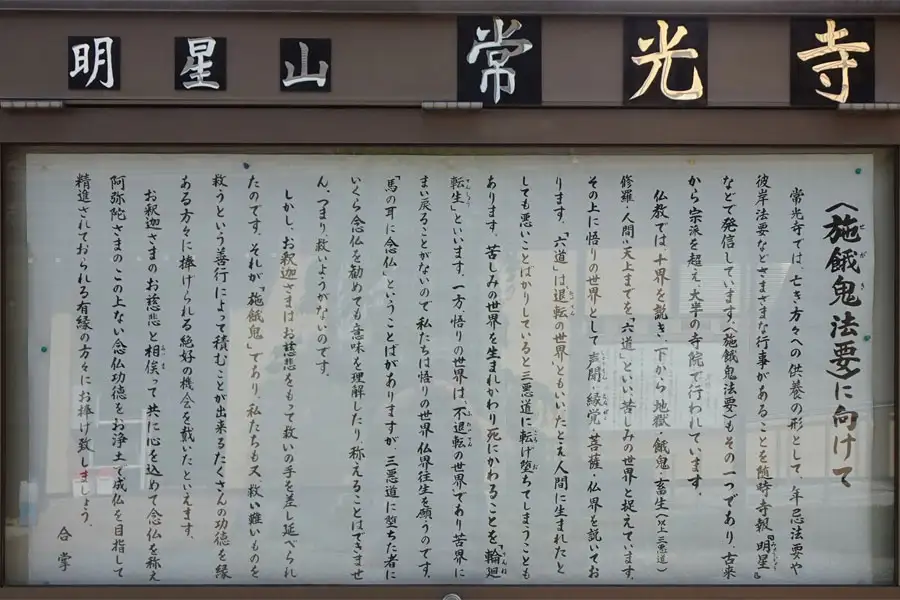 明星山 常光寺
〈施餓鬼法要〉に向けて
常光寺では、亡き方々への供養の形として、年忌法要や
彼岸法要などさまざまな行事があることを随時寺報『明星』
などで発信しています。〈施餓鬼法要〉もその一つであり、古来
から宗派を超え、大半の寺院で行われています。
仏教では十界を説き、下から地獄・餓鬼・畜生(以上三悪道)
修羅・人間・天上までを「六道」といい、苦しみの世界と捉えています。
その上に悟りの世界として声聞・縁覚・菩薩・仏界を説いてお
ります。「六道」は退転の世界ともいい、たとえ人間に生まれたと
しても悪いことばかりしていると三悪道に転げ堕ちてしまうことも
あります。苦しみの世界を生まれかわり死にかわることを「輪廻
転生」といいます。一方、悟りの世界は、不退転の世界であり苦界に
まい戻ることがないので私たちは悟りの世界仏界往生を願うのです。
「馬の耳に念仏」ということばがありますが、三悪道に堕ちた者に
いくら念仏を勧めても意味を理解したり、称えることはできませ
ん。つまり、救いようがないのです。
しかし、お釈迦さまはお慈悲をもって救いの手を差し延べられ
たのです。それが「施餓鬼」であり、私たちも又、救い難いものを
救うという善行によって積むことが出来るたくさんの功徳を縁
ある方々に捧げられる絶好の機会を戴いたといえます。
お釈迦さまのお慈悲と相俟って共に心を込めて念仏を称え
阿弥陀さまのこの上ない念仏功徳をお浄土で成仏を目指して
精進されておられる有縁の方々にお捧げ致しましょう。
合掌